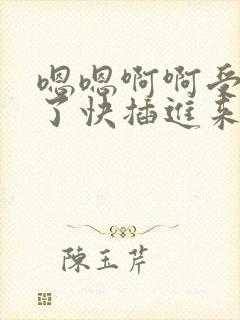 嗯嗯啊啊受
了快插進来
陳玉芹